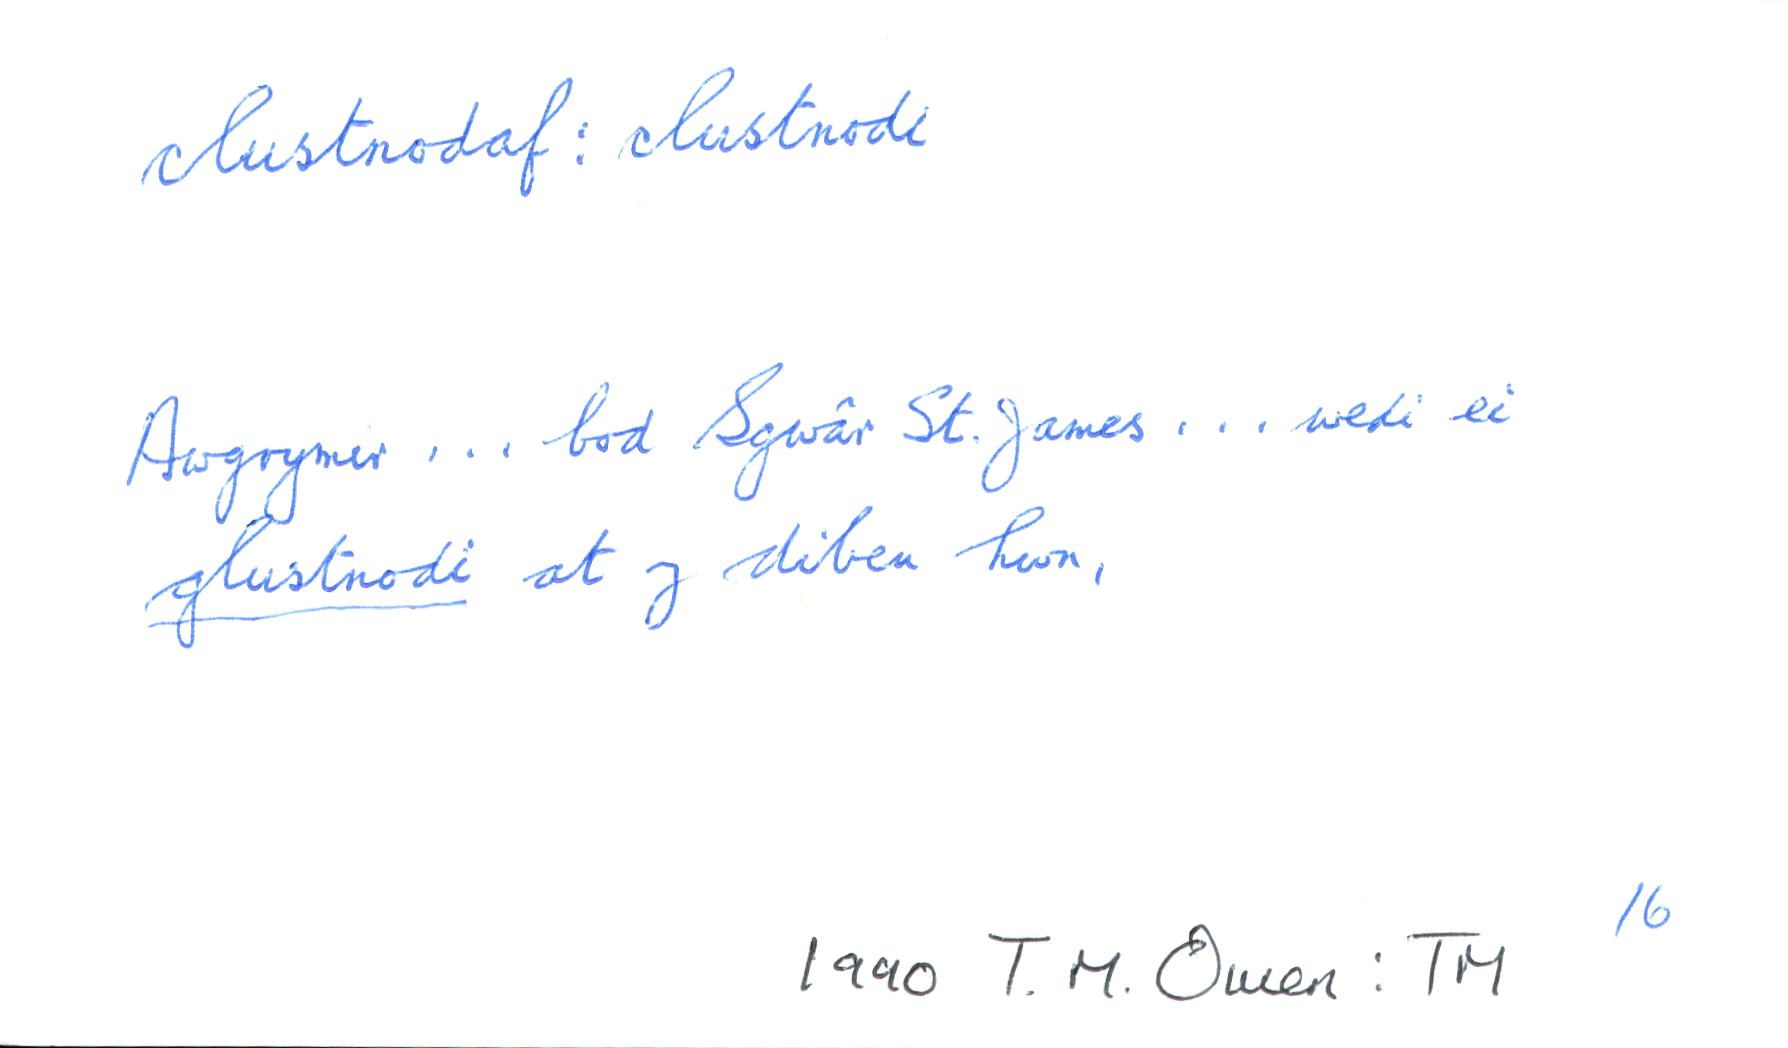 clustnodaf: clustnodi
Awgrymir ... bod Sgwâr St. James ... wedi ei
glustnodi at y diben hwn,
16
1990 T. M. Owen: TM